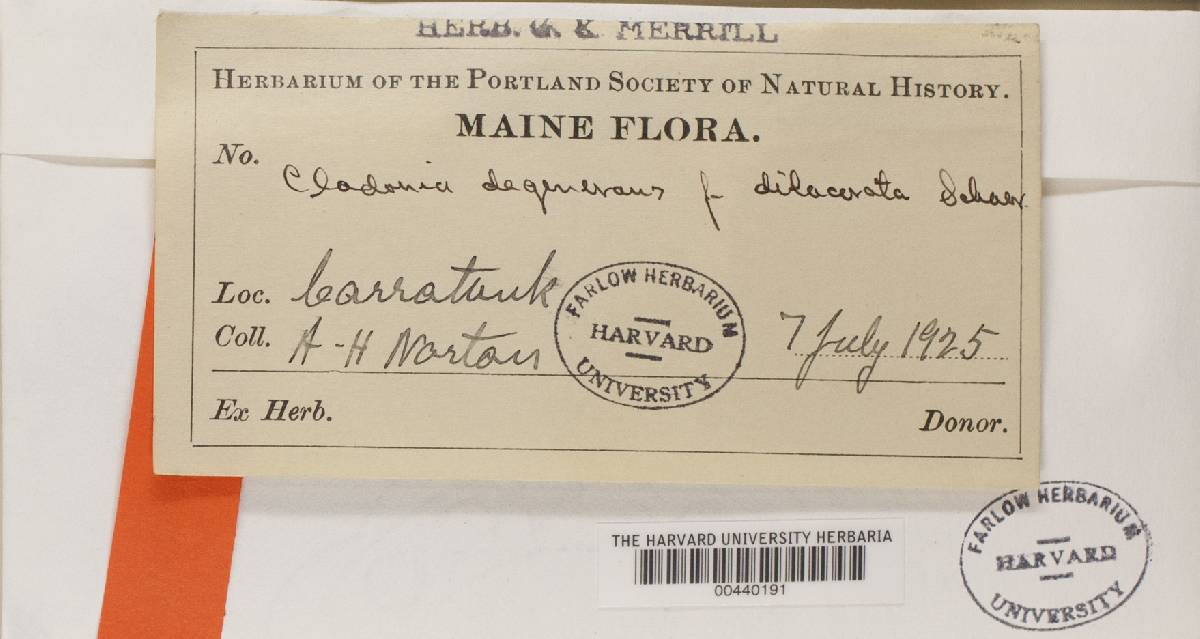 HERB. G. K. MERRILL
HERBARIUM OF THE PORTLAND SOCIETY OF NATURAL HISTORY.
MAINE FLORA.
No.
Cladonia degenerans f dilacerata Schaer.
Loc. Carratunk
Coll. A-H Norton
7 July 1925
FARLOW HERBARIUM
HARVARD
UNIVERSITY
Ex Herb.
Donor.
FARLOW HERBARIUM
HARVARD
UNIVERSITY
THE HARVARD UNIVERSITY HERBARIA
00440191